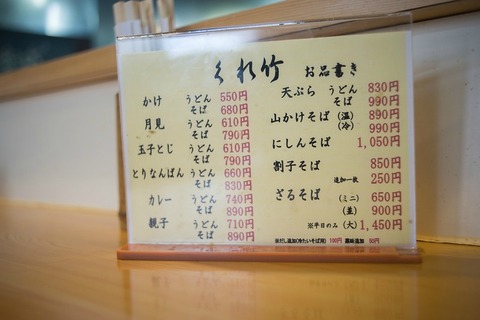 くれ竹 お品書き
かけ うどん 550円
そば 680円
月見 うどん 610円
そば 790円
玉子とじ うどん 610円
そば 790円
とりなんばん うどん 660円
そば 830円
カレー うどん 740円
そば 890円
親子 うどん 710円
そば 890円
天ぷら うどん 830円
そば 990円
山かけそば (温) 890円
(冷) 990円
にしんそば 1,050円
割子そば 850円
追加一枚 250円
ざるそば (ミニ) 650円
(並) 900円
※平日のみ (大) 1,450円
※だし追加(冷たいそば用) 100円 薬味追加 50円